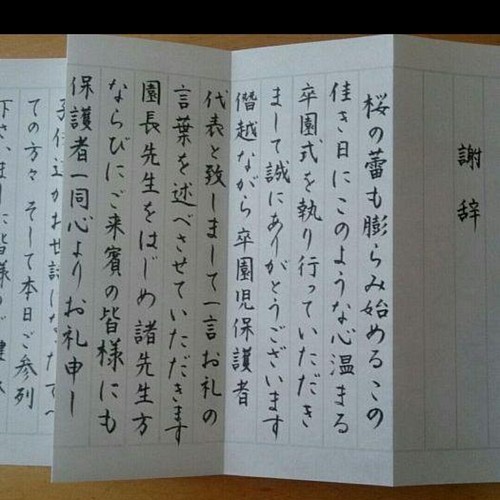 謝辞
桜の蕾も膨らみ始めるこの
佳き日にこのような心温まる
卒園式を執り行っていただき
まして誠にありがとうございます
僭越ながら卒園児保護者
代表と致しまして一言お礼の
言葉を述べさせていただきます
園長先生をはじめ諸先生方
ならびにご来賓の皆様にも
保護者一同心よりお礼申し
ての方々 そして本日ご参列
下さいました皆様のご健